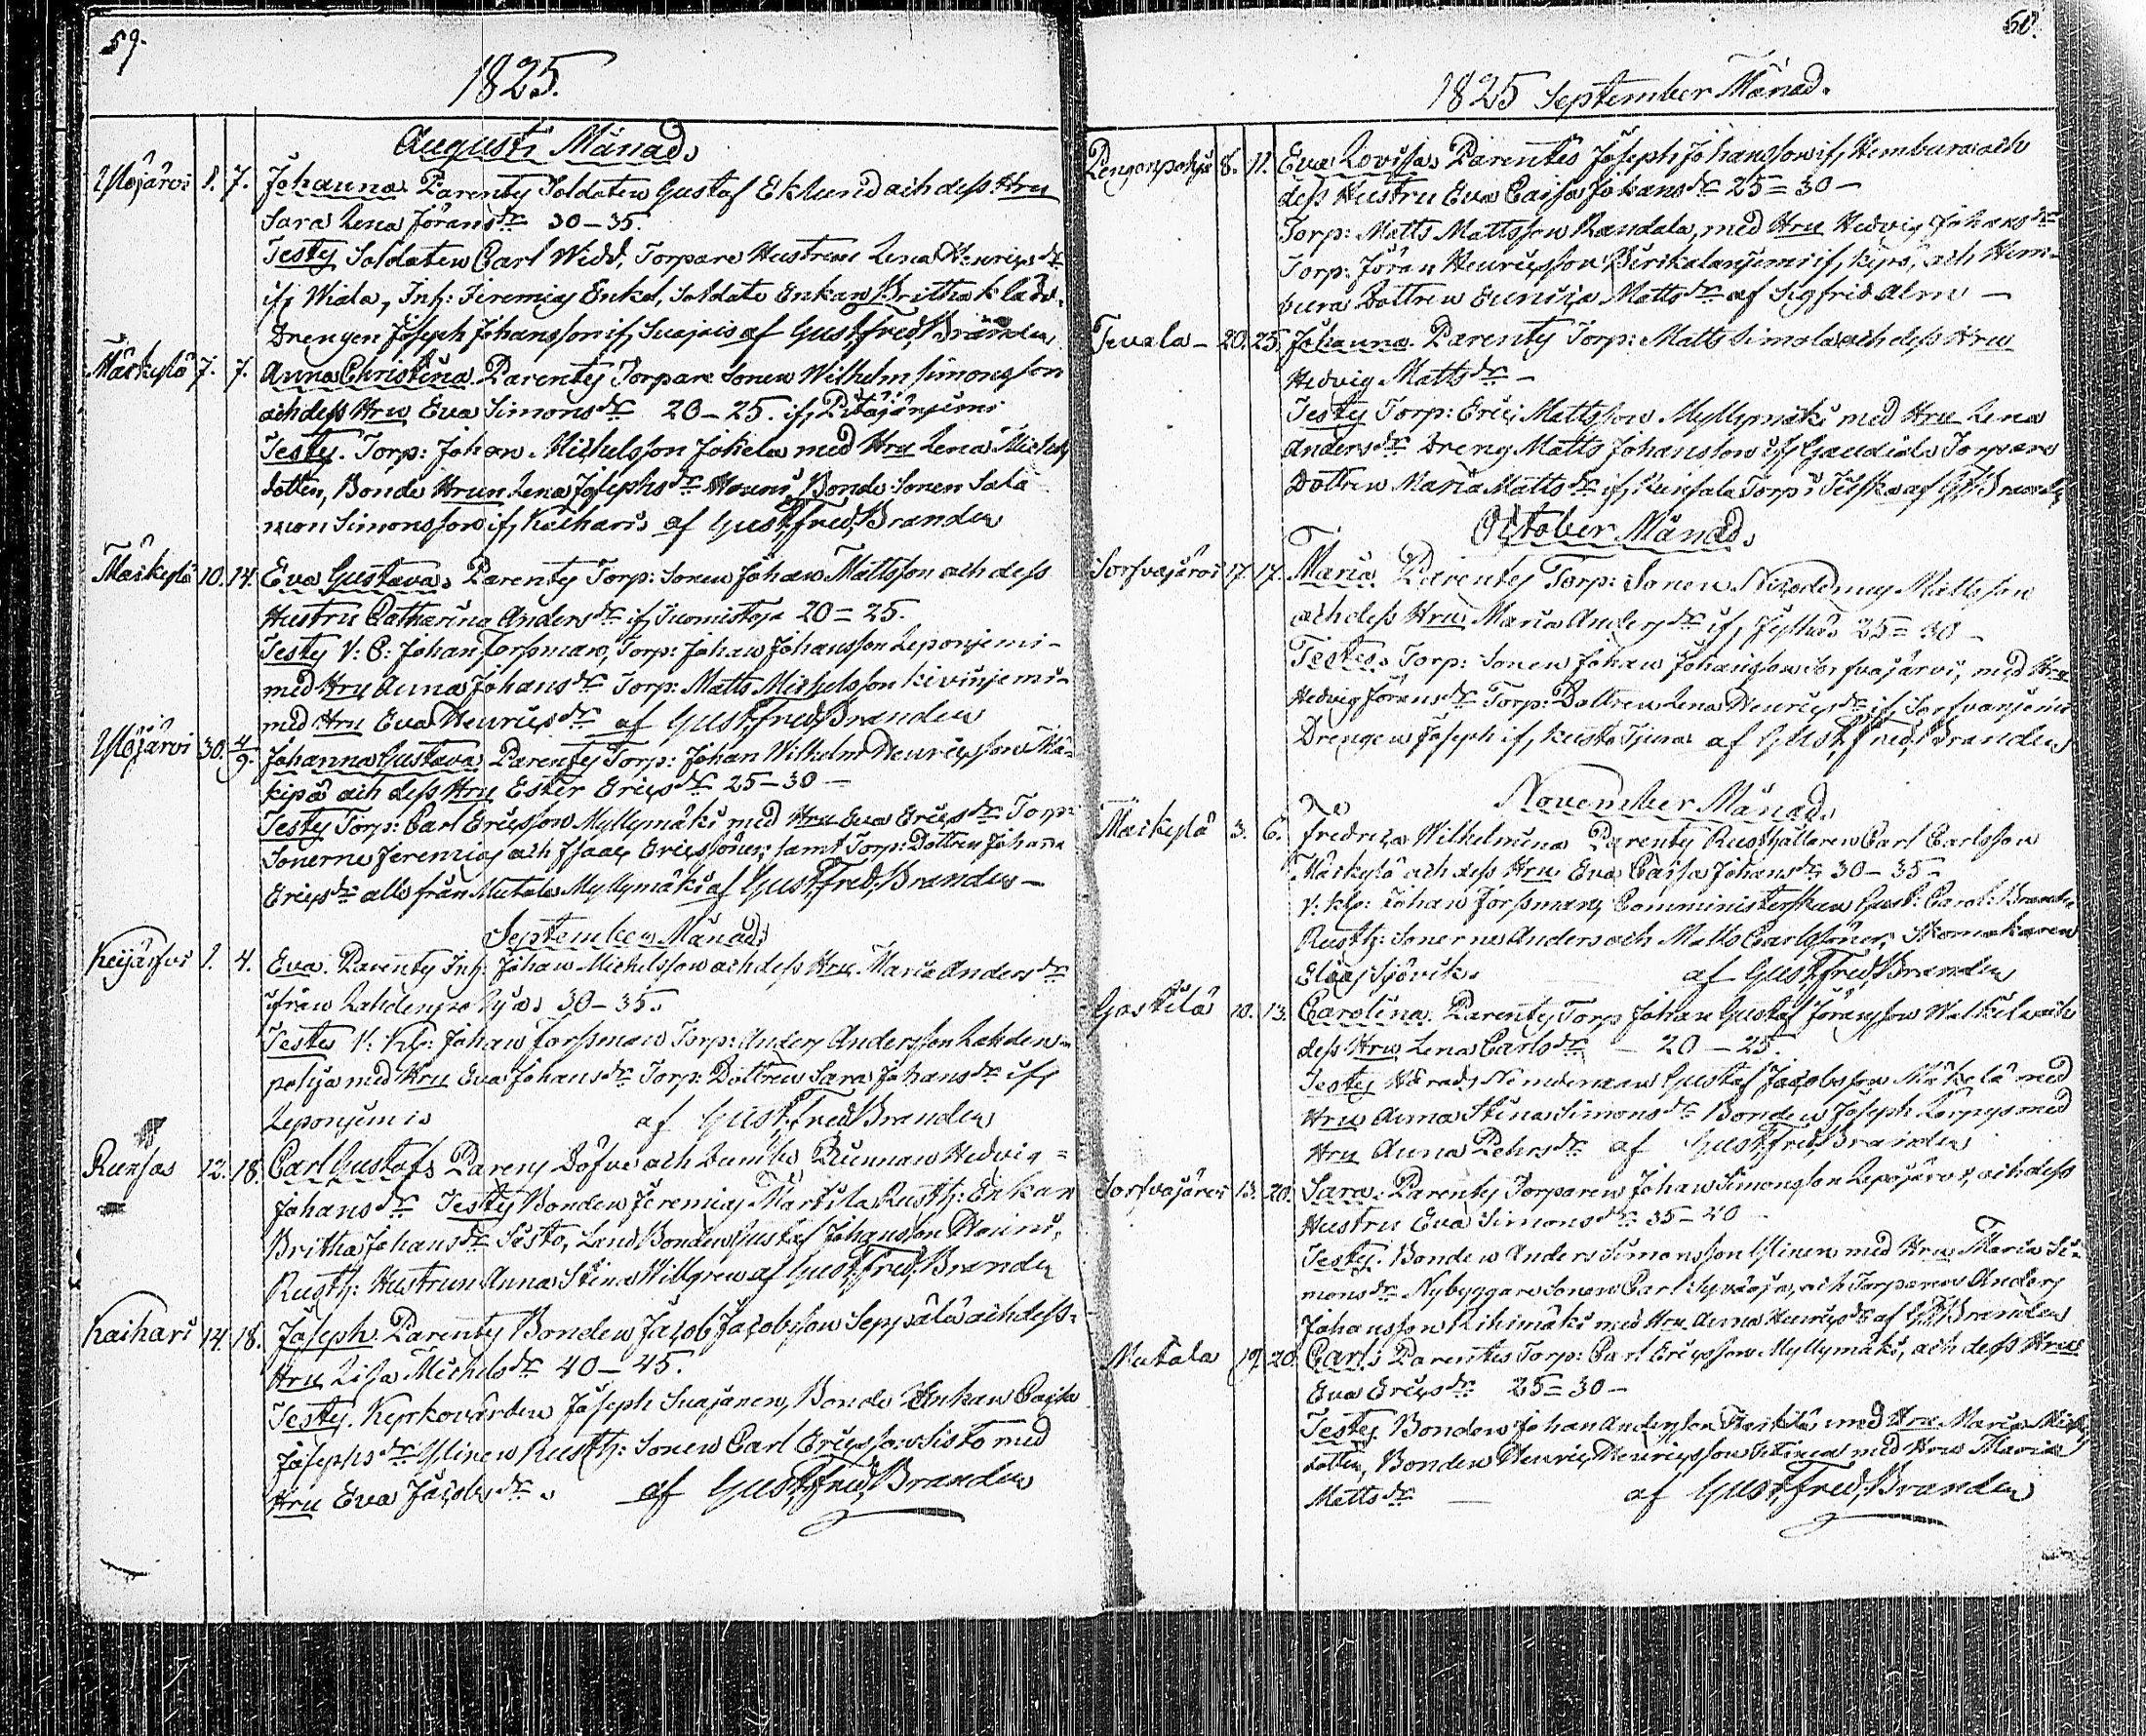 59.
1825.
Augusti Månad.
Ylöjärvi 1. 7. Johanna. Parentes Soldaten Gustaf Eklund och dess Hru
Sara Lena Jöransdr 30–35.
Testes Soldaten Carl Widd, Torpare Hustrun Lena Henricsdr
ifr Wiala, Inh: Jeremias Enkel, Soldate Enkan Britha
Drengen Joseph Johansson ifr af Gust, Fred, Brander
Mäskylä 7. 7. Anna Christina. Parentes Torpare Sonen Wilhelm Simonsson
och dess Hru Eva Simonsdr 20–25. ifr
Testes. Torp: Johan Michelsson Jokela med Hru Lena Michels
dotter, Bonde Hrun Lena Josephsdr Bonde Sonen Salo
mon Simonsson ifr Kaihari. af Gust, Fred, Brander
Mäskylä 10. 14. Eva Gustava. Parentes Torp: Sonen Johan Mattsson och dess
Hustru Catharina Andersdr ifr 20=25.
Testes V: C: Johan Forssman, Torp: Johan Johansson Leponjemi–
med Hru Anna Johansdr Torp: Matts Michelsson Kivinjemi–
med Hru Eva Henricsdr af Gust, Fred, Brander
Ylöjärvi 30. 4/9. Johanna Gustava Parentes Torp: Johan Wilhelm Henricsson Mä-
kipä och dess Hru Ester Ericsdr 25–30 –
Testes Torp: Carl Ericsson Myllymäki med Hru Eva Ericsdr Torp:
Sonerne Jeremias och Isaac Ericssöner, samt Torp: Dottren Johanna
Ericsdr alla från Mutala Myllymäki af Gust, Fred, Brander –
September Månad.
Keijärfvi 1. 4. Eva. Parentes Inh: Johan Michelsson och dess Hru Maria Andersdr
ifrån 30–35.
Testes V: Klp: Johan Forssman Torp: Anders Andersson Lahden-
pohja med Hru Eva Johansdr Torp: Dottren Sara Johansdr ifr
Leponjemi. af Gust, Fred, Brander
Runsas 12. 18. Carl Gustaf. Parens Qunnan Hedvig =
Johansdr Testes Bonden Jeremias Marttila Rusth: Enkan
Britha Johansdr Sósto, Land Bonden Gustaf Johansson
Rusth: Hustrun Anna Stina Willgren af Gust, Fred, Brander
Kaihari 14. 18. Joseph. Parentes Bonden Jacob Jacobsson Seppälä och dess
Hru Lisa Michelsdr 40–45.
Testes. Kyrkovärden Joseph Suojanen, Bonde Enkan Caisa
Josephsdr Ylinen Rusth: Sonen Carl Ericsson Sisto med
Hru Eva Jacobsdr. af Gust, Fred, Brander
60.
1825 September Månad.
Pengonpohja 8. 11. Eva Lovisa. Parentes Joseph Johansson ifr Hembura och
dess Hustru Eva Caisa Johansdr 25=30–
Torp: Matts Mattsson Randala, med Hru Hedvig Johansdr
Torp: Jöran Henricsson ifr och Hem-
bura Dottren Eunica Mattsdr af Sigfrid Alm –
Tevala – 20. 25. Johanna. Parentes Torp: Matts Simola och dess Hru
Hedvig Mattsdr –
Testes Torp: Eric Mattsson Myllymäki med Hru Lena
Andersdr Dreng Matts Johansson ifr Torpare
Dottren Maria Mattsdr ifr af G, F, Brander
October Månad.
Sorfvajärvi 17. 17. Maria. Parentes Torp: Sonen Nicodemus Mattsson
och dess Hru Maria Andersdr ifr Jylhä 25=30 –
Testes. Torp: Sonen Johan Johansson Sorfvajärvi, med Hru
Hedvig Jöransdr Torp: Dottren Lena Henricsdr ifr
Drengen Joseph ifr af Gust, Fred, Brander
November Månad.
Mäskylä 3. 6. Fredrica Wilhelmina Parentes Rusthållaren Carl Carlsson
Mäskylä och dess Hru Eva Caisa Johansdr 30–35–
V: Klp: Johan Forssman, Comministerskan Gust: Carol: Brander
Rusth: Sonerne Anders och Matts Carlssöner, Skomakaren
Elias Sjövik. af Gust, Fred, Brander
Gastilä 10. 13. Carolina. Parentes Torp Johan Gustaf Jöransson Walkila och
dess Hru Lena Carlsdr – 20–25.
Testes Härads Nemdeman Gustaf Jacobsson Mäkelä med
Hru Anna Stina Simonsdr Bonden Joseph Korpys med
Hru Anna Pehrsdr af Gust, Fred, Brander
Sorfvajärvi 13. 20. Sara. Parentes Torparen Johan Simonsson Lepojärvi, och dess
Hustru Eva Simonsdr 35–40
Testes. Bonden Anders Simonsson Ylinen med Hru Maria Si-
monsdr Nybyggare Sonen Carl och Torparen Anders
Johansson Rihimäki med Hru Anna Henricsdr af G, F, Brander
Mutala 19. 20. Carl. Parentes Torp: Carl Ericsson Myllymäki, och dess Hru
Eva Ericsdr 25=30–
Testes Bonden Johan Andersson med Hru Maria Michels
dotter, Bonden Henric Henricsson med Hru Maria
Mattsdr – af Gust, Fred, Brander